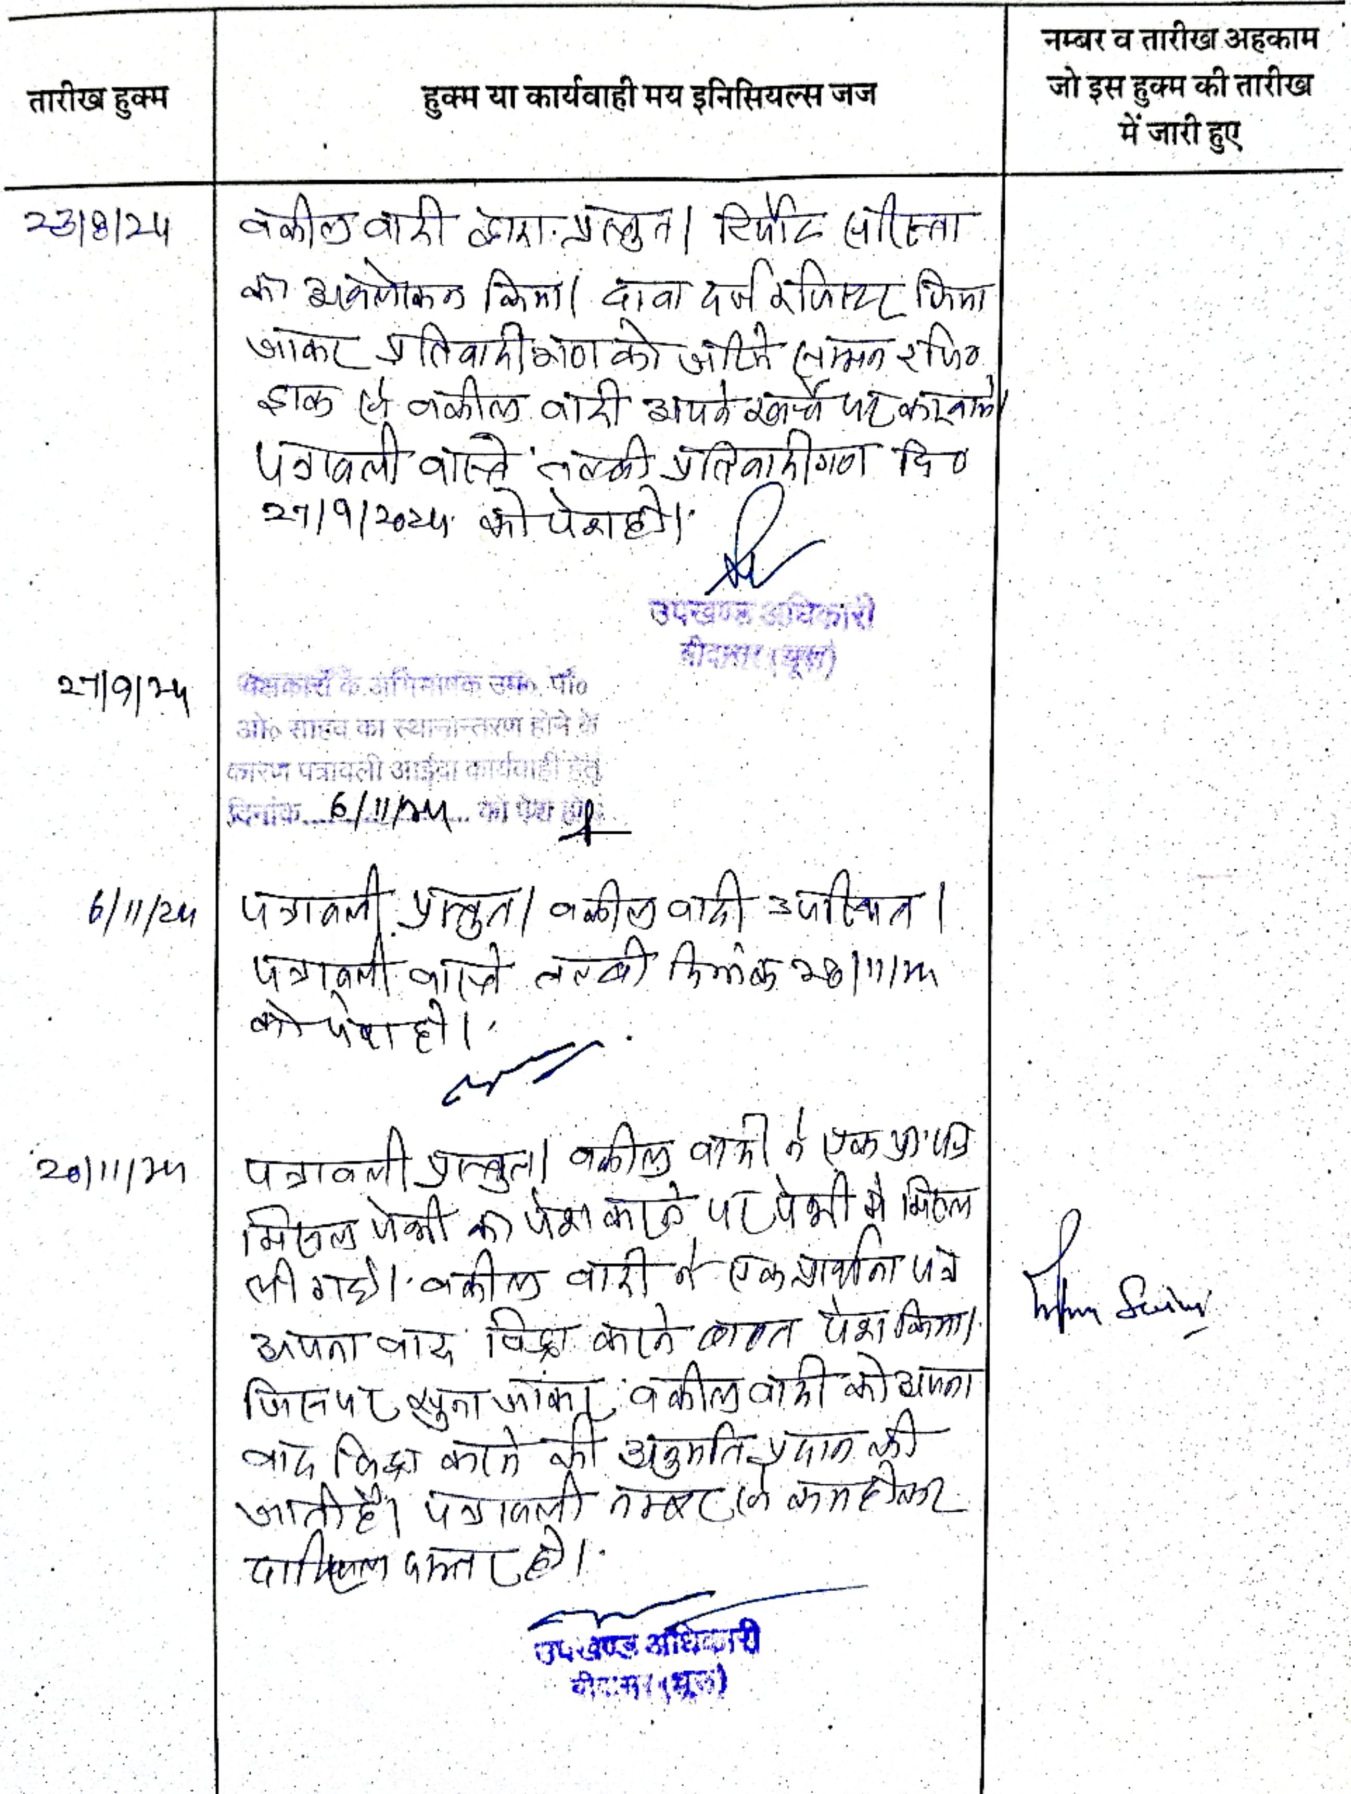 तारीख हुक्म
हुक्म या कार्यवाही मय इनिसियल्स जज
नम्बर व तारीख अहकाम
जो इस हुक्म की तारीख
में जारी हुए
23/8/24
वकील वादी द्वारा प्रस्तुत। रिपोर्ट सरिस्ता
का अवलोकन किया। दावा दर्ज रजिस्टर किया
जाकर प्रतिवादीगण को जरिये सम्मन रजि०
डाक से वकील वादी अपने खर्चे पर करवाये।
पत्रावली वास्ते तलबी प्रतिवादीगण दि०
27/9/2024 को पेश हो।
उपखण्ड अधिकारी
बीदासर (चूरू)
27/9/24
पक्षकारों के अभिभाषक उप०. पी०
ओ० साहब का स्थानान्तरण होने के
कारण पत्रावली आईंदा कार्यवाही हेतु
दिनांक 6/11/24 को पेश हो।
6/11/24
पत्रावली प्रस्तुत। वकील वादी उपस्थित।
पत्रावली वास्ते तलबी दिनांक /11/24
को पेश हो।
20/11/24
पत्रावली प्रस्तुत। वकील वादी ने एक प्रा. पत्र
मिसल पेशी का पेश करने पर पेशी में मिसल
ली गई। वकील वादी ने एक प्रार्थना पत्र
अपना वाद विड्रा करने बाबत पेश किया।
जिस पर सुना जाकर वकील वादी को अपना
वाद विड्रा करने की अनुमति प्रदान की
जाती है। पत्रावली नम्बर से कम होकर
दाखिल दफ्तर हो।
उपखण्ड अधिकारी
बीदासर (चूरू)